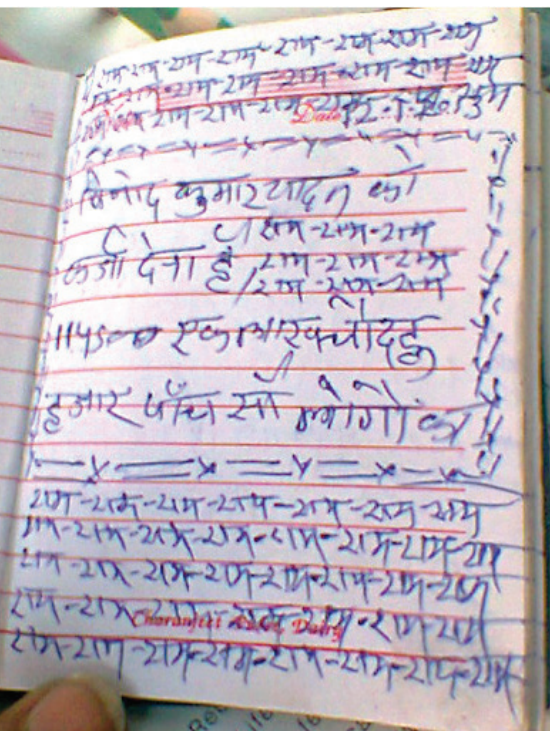 राम-राम-राम-राम-राम-राम-राम-राम
राम-राम-राम-राम-राम-राम-राम-राम
राम-राम-राम-राम-राम-राम-राम
Date 12.1.2013
विनोद कुमार यादव को
राम-राम-राम
कर्जा देना है, राम-राम-राम
राम-राम-राम
114500 एक लाख चौदह
हजार पाँच सौ लोगों का
राम-राम-राम-राम-राम-राम-राम
राम-राम-राम-राम-राम-राम-राम-राम
राम-राम-राम-राम-राम-राम-राम-राम
राम-राम-राम-राम-राम-राम-राम
Charanjeet Daily Dairy
राम-राम-राम-राम-राम-राम-राम-राम